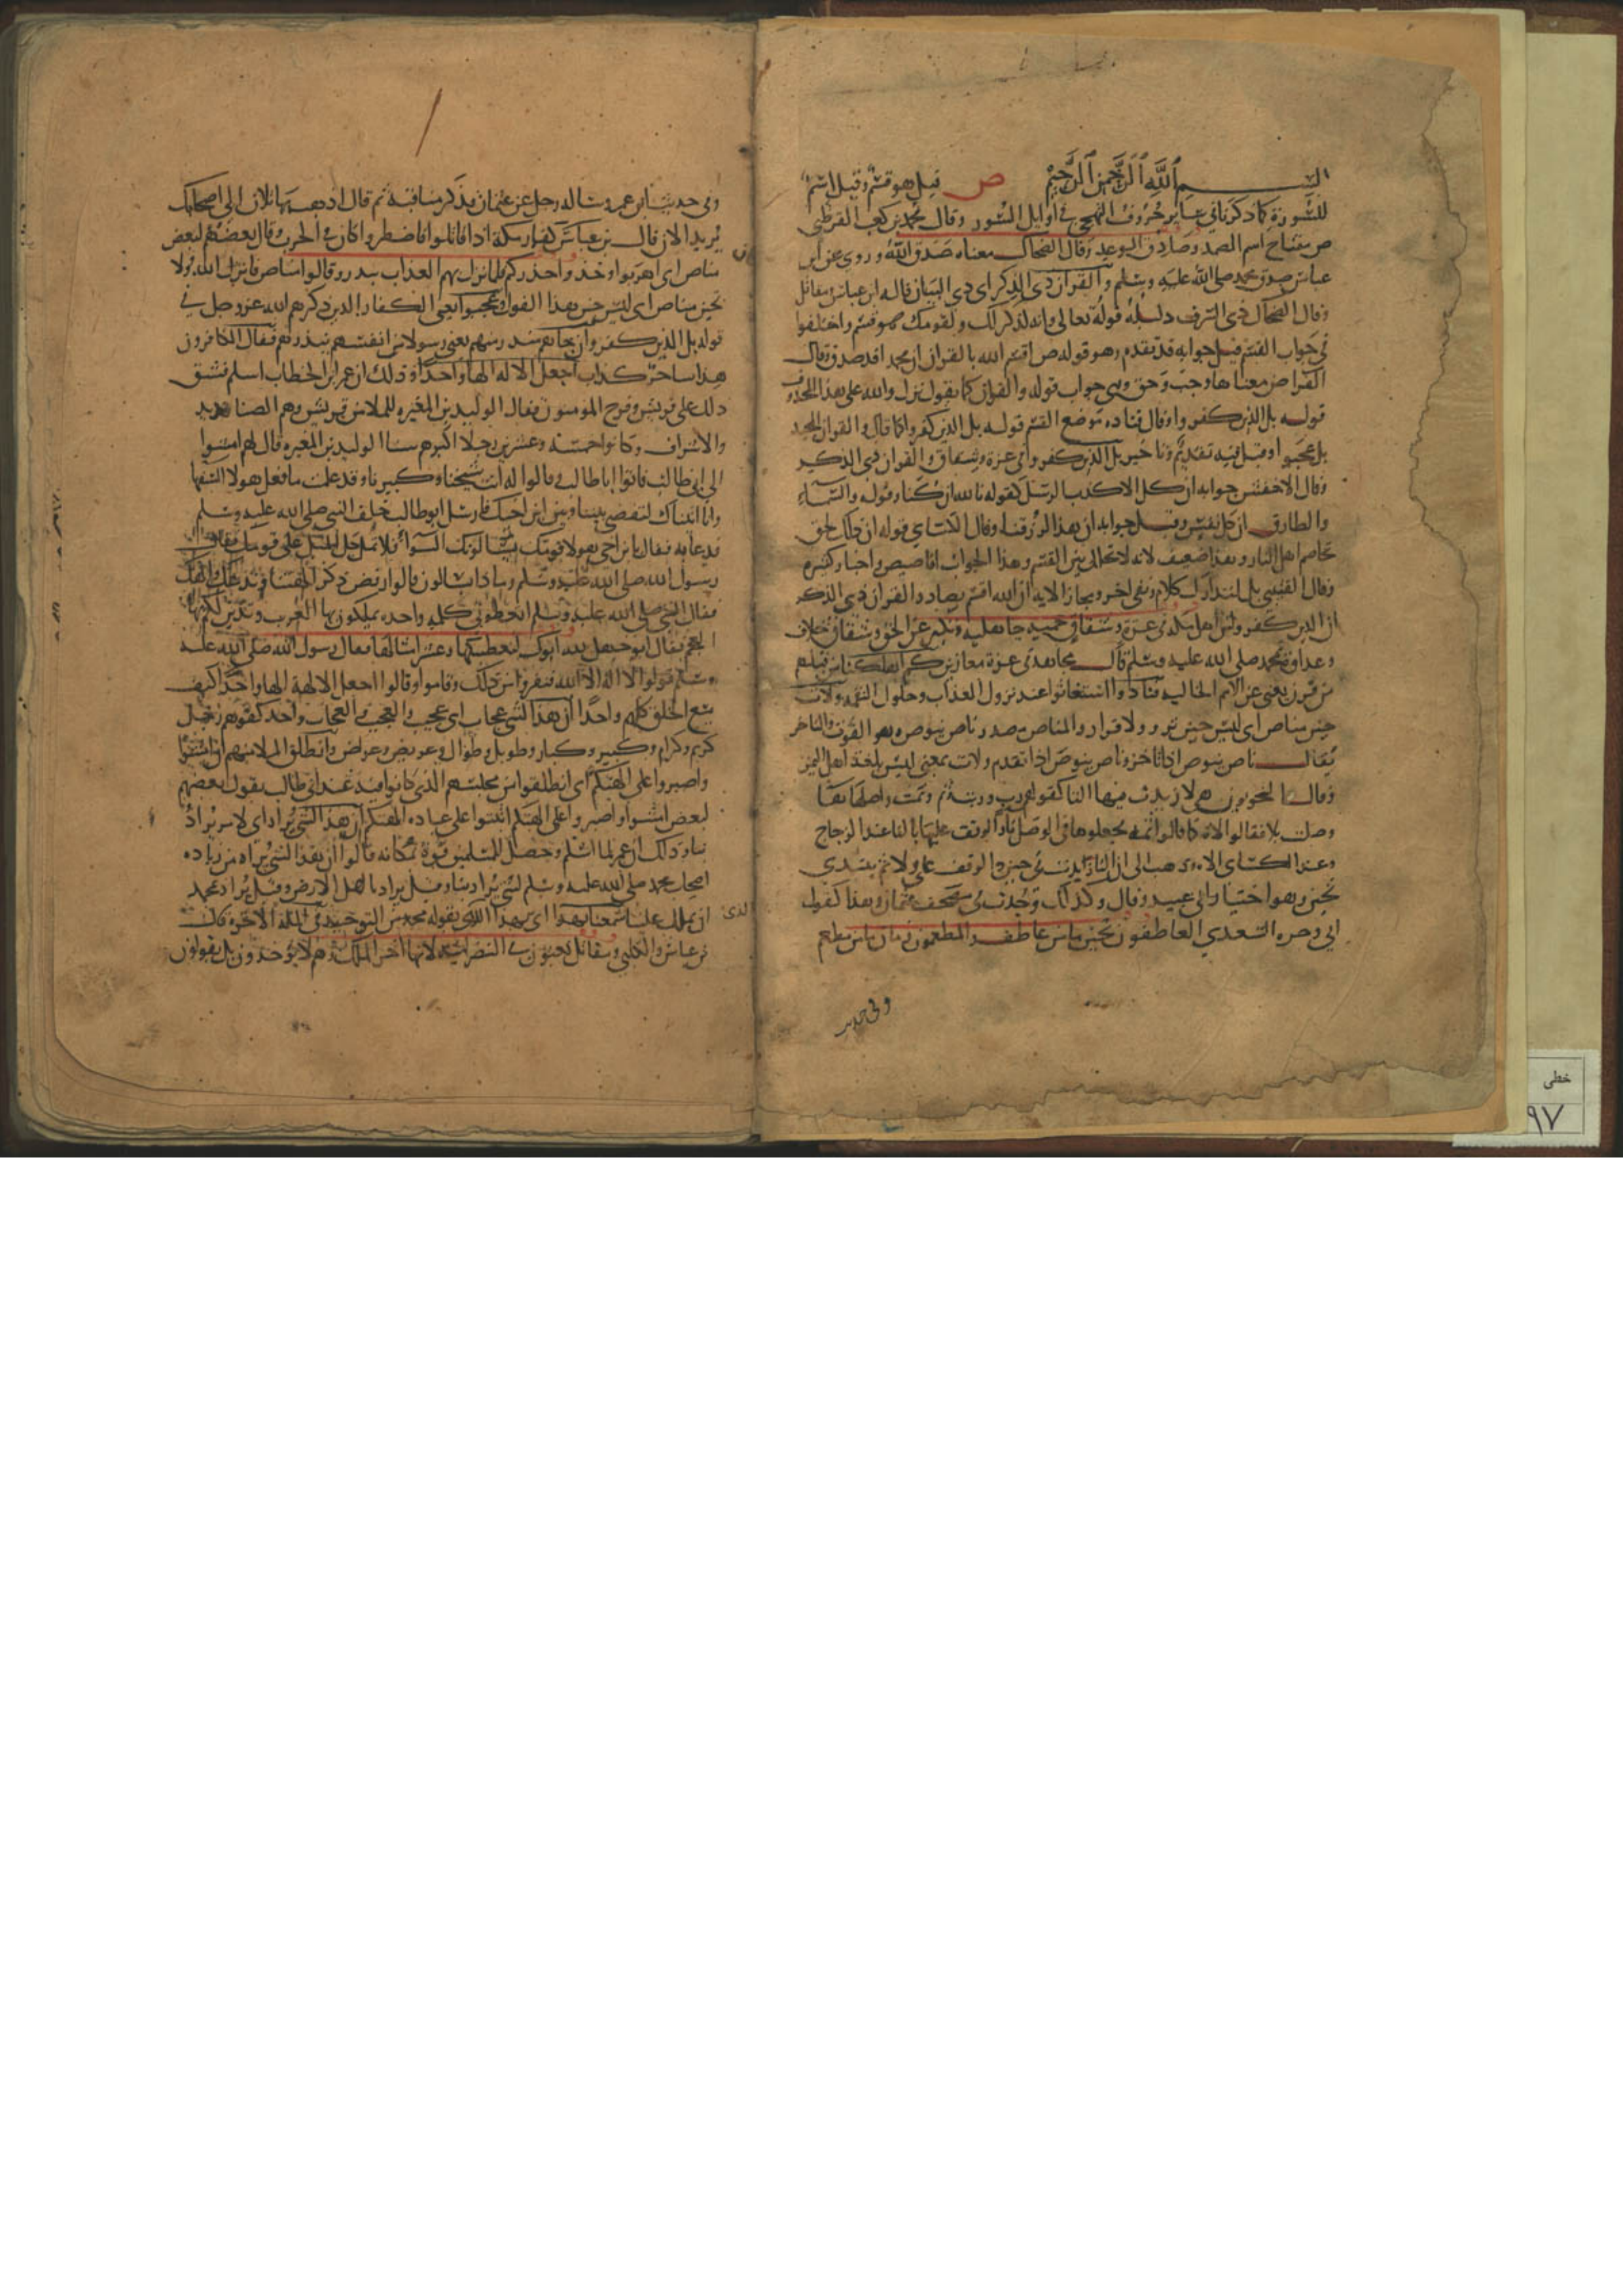 بسم الله الرحمن الرحيم ص قيل هو قسم وقيل اسم
للسورة كما ذكرنا في سائر حروف التهجي في اوايل السور وقال محمد بن كعب القرظي
ص مفتاح اسم الصمد وصادق الوعد وقال الضحاك معناه صدق الله وروي عن ابن
عباس صدق محمد صلى الله عليه وسلم والقران ذي الذكر اي ذي البيان قاله ابن عباس ومقاتل
وقال الضحاك ذي الشرف دليله قوله تعالى وانه لذكر لك ولقومك وهو قسم واختلفوا
في جواب القسم قيل جوابه قد تقدم وهو قوله ص اقسم الله بالقران ان محمدا قد صدق وقال
الفرا ص معناها وجب وحق وهي جواب قوله والقران كما يقول نزل والله على هذا المحذوف
قوله بل الذين كفروا وقال قتاده موضع القسم قوله بل الذين كفروا كما قال والقران المجيد
بل عجبوا وقيل فيه تقديم وتاخير بل الذين كفروا في عزة وشقاق والقران ذي الذكر
وقال الاخفش جوابه ان كل الا كذب الرسل كقوله تالله ان كنا وقوله والسماء
والطارق ان كل نفس وقيل جوابه ان هذا لرزقنا وقال الكساي قوله ان ذلك لحق
تخاصم اهل النار وهذا ضعيف لانه لا تخلل بين القسم وهذا الجواب اقاصيص واخبار كثيره
وقال القتيبي بل لتدارك كلام ونفي اخر ومجاز الايه ان الله اقسم بصاد والقران ذي الذكر
ان الذين كفروا من اهل مكه في عزة وشقاق حميه جاهليه وتكبر عن الحق وشقاق خلاف
وعداوة لمحمد صلى الله عليه وسلم قال مجاهد في عزة معازين كم اهلكنا من قبلهم
من قرن يعني من الامم الخاليه فنادوا استغاثوا عند نزول العذاب وحلول النقمه ولات
حين مناص اي ليس حين نزو ولا فرار والمناص مصدر ناص ينوص وهو الفوت والتاخر
يقال ناص ينوص اذا تاخر وناص ينوص اذا تقدم ولات بمعنى ليس بلغة اهل اليمن
وقال النحويون هي لا زيدت فيها التا كقولهم رب وربت وثم وثمت واصلها هاء
وصلت بلا فقالوا لاه كما قالوا ثمه فجعلوها في الوصل تاء والوقف عليها بالتا عند الزجاج
وعند الكساي الاه وذهب الى ان التا زيدت في حين والوقف على ولا ثم يبتدي
تحين وهو اختيار ابي عبيد وقال وكذلك وجدت في مصحف عثمان وهذا كقول
ابي وجزه السعدي العاطفون تحين ما من عاطف والمطعمون زمان ما من مطعم
وفي حديث
وفي حديث ابن عمر وساله رجل عن عثمان فذكر مناقبه ثم قال اذهب بها تلان الى اصحابك
يريد الان قال ابن عباس كفار مكة اذا قاتلوا فاضطروا كان في الحرب قال بعضهم لبعض
مناص اي اهربوا وخذوا حذركم فلما نزل بهم العذاب ببدر وقالوا مناص فانزل الله ولا
تحين مناص اي ليس حين هذا القول وعجبوا يعني الكفار الذين ذكرهم الله عز وجل في
قوله بل الذين كفروا ان جاءهم منذر منهم يعني رسولا من انفسهم ينذرهم فقال الكافرون
هذا ساحر كذاب اجعل الالهة الها واحدا وذلك ان عمر بن الخطاب اسلم فشق
ذلك على قريش وفرح المؤمنون فقال الوليد بن المغيره للملا من قريش وهم الصناديد
والاشراف وكانوا خمسة وعشرين رجلا اكبرهم سنا الوليد بن المغيره قال لهم امشوا
الى ابي طالب فاتوا ابا طالب قالوا له انت شيخنا وكبيرنا وقد علمت ما فعل هولا السفها
وانا اتيناك لتقضي بيننا وبين ابن اخيك فارسل ابو طالب خلف النبي صلى الله عليه وسلم
فدعا به فقال يا بن اخي هولا قومك يسالونك السواء فلا تمل كل الميل على قومك فقال
رسول الله صلى الله عليه وسلم وماذا يسالون قالوا ارفض ذكر الهتنا وندعك والهك
فقال النبي صلى الله عليه وسلم اتعطوني كلمه واحده تملكون بها العرب وتدين لكم بها
العجم فقال ابو جهل لله ابوك لنعطينكها وعشر امثالها فقال رسول الله صلى الله عليه
وسلم قولوا لا اله الا الله فنفروا من ذلك وقاموا وقالوا اجعل الالهة الها واحدا كيف
يسع الخلق كلهم واحدا ان هذا لشي عجاب اي عجيب والعجيب والعجاب واحد كقولهم رجل
كريم وكرام وكبير وكبار وطويل وطوال وعريض وعراض وانطلق الملا منهم ان امشوا
واصبروا على الهتكم اي انطلقوا من مجلسهم الذي كانوا فيه عند ابي طالب يقول بعضهم
لبعض امشوا واصبروا على الهتكم اثبتوا على عباده الهتكم ان هذا لشي يراد اي لامر يراد
بنا وذلك ان عمر لما اسلم وحصل للمسلمين قوة لمكانه قالوا ان هذا الذي يراه من زياده
اصحاب محمد صلى الله عليه وسلم لشي يراد بنا وقيل يراد باهل الارض وقيل يراد بمحمد
ان يملك علينا ما سمعنا بهذا اي بهذا الذي يقوله محمد من التوحيد في الملة الاخرة قال
بن عباس والكلبي ومقاتل يعنون في النصرانيه لانها اخر الملل وهم لا يوحدون بل يقولون
خطى
٩٧